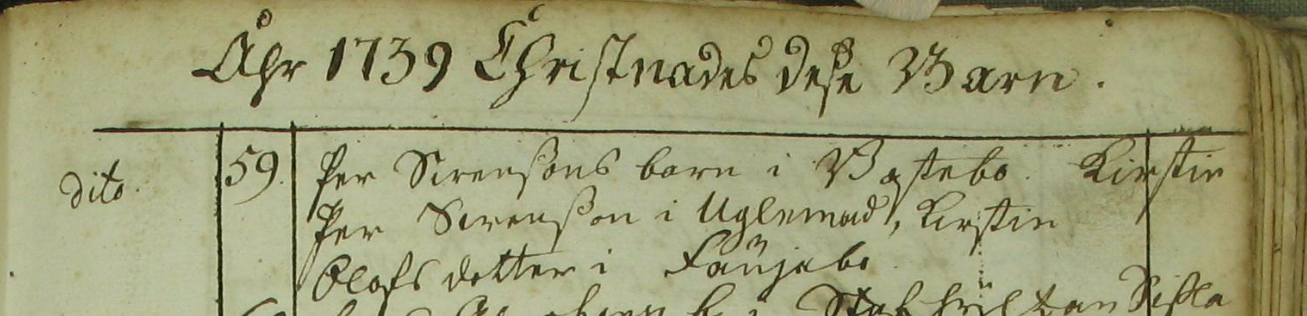 Åhr 1739 Christnades dese Barn.
dito. 59. Per Svenßons barn i Bastebo. Kirstin
Per Svenßon i Uglemad, Kirstin
Olofs dotter i Faujebo